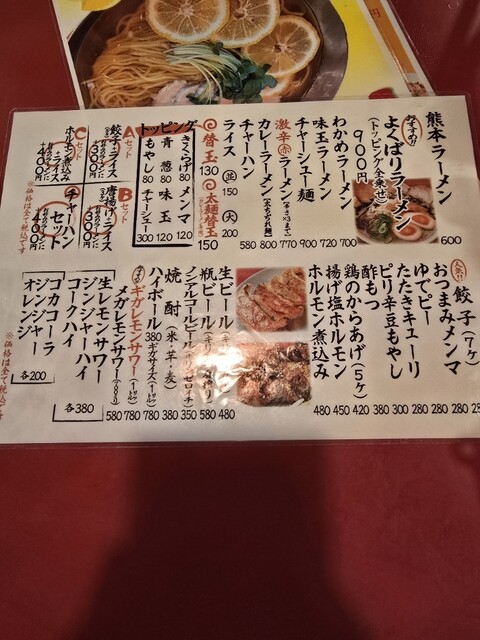 熊本ラーメン 600
おすすめ!!
よくばりラーメン
(トッピング全乗せ)
900円
わかめラーメン 700
味玉ラーメン 720
チャーシュー麺 900
激辛(赤)ラーメン(辛さ×3まで) 770
カレーラーメン 800
チャーハン 580
ライス (並)150 (大)200
替玉 130
太麺替玉 150
トッピング
きくらげ 80 メンマ 120
青葱 80 味玉 120
もやし 80 チャーシュー 300
Aセット
餃子・ライス
300円
Bセット
唐揚げ・ライス
400円
Cセット
ホルモン煮込み
ライス
400円
チャーハン
セット
400円
※価格は全て税込です
人気!!
餃子(7ヶ)
おつまみメンマ 280
ゆでピー 280
たたきキューリ 280
ピリ辛豆もやし 300
酢もつ 380
鶏のからあげ(5ヶ) 420
揚げ塩ホルモン 450
ホルモン煮込み 480
生ビール 480
瓶ビール 580
ノンアルコールビール 350
焼酎(米・芋・麦) 380
ハイボール 380 ギガサイズ 780
ギガレモンサワー 780
メガレモンサワー 580
生レモンサワー
ジンジャーハイ
コークハイ
各380
コカコーラ
ジンジャー
オレンジ
各200
※価格は全て税込です